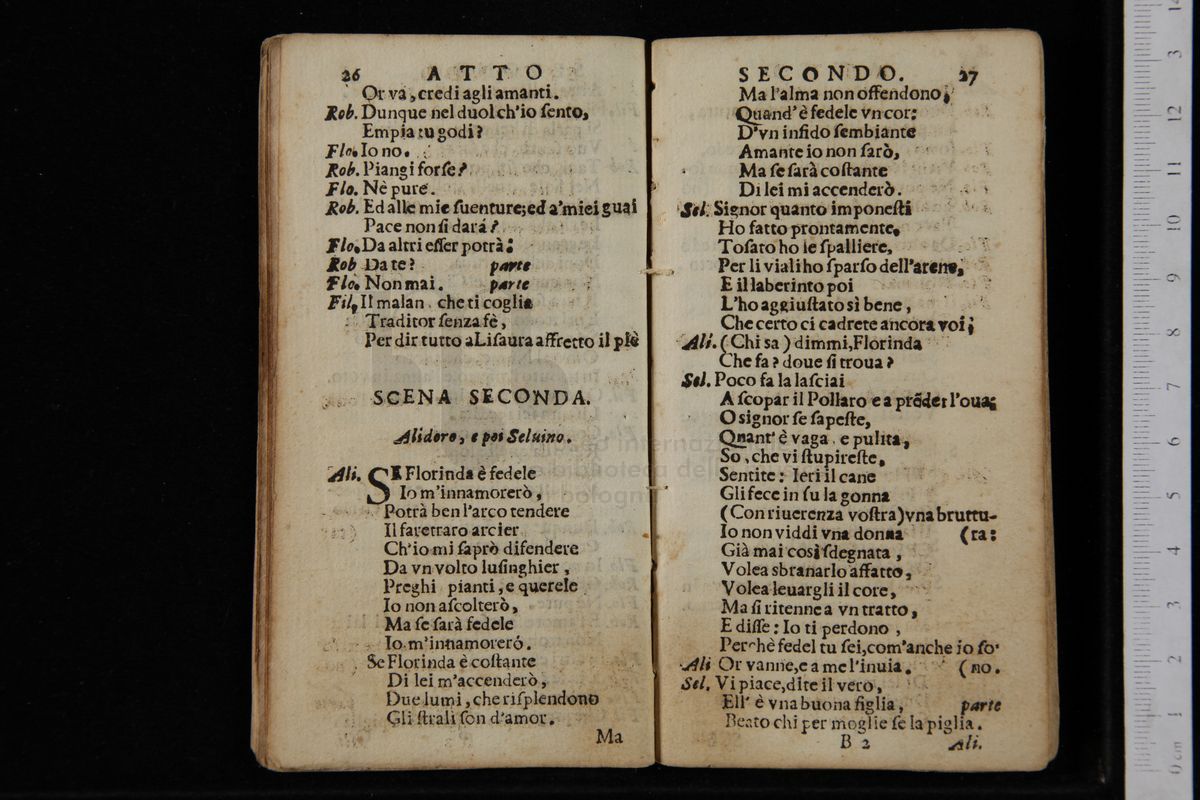 26 ATTO
Or va, credi agli amanti.
Rob. Dunque nel duol ch'io ſento,
Empia tu godi?
Flo. Io no.
Rob. Piangi forſe?
Flo. Nè pure.
Rob. Ed alle mie ſuenture; ed a'miei guai
Pace non ſi dará?
Flo. Da altri eſſer potrà:
Rob Da te? parte
Flo. Non mai. parte
Fil, Il malan che ti coglia
Traditor ſenza fè,
Per dir tutto a Liſaura affretto il piè
SCENA SECONDA.
Alidoro, e poi Seluino.
Ali. SE Florinda è fedele
Io m'innamorerò,
Potrà ben l'arco tendere
Il faretraro arcier
Ch'io mi ſaprò difendere
Da vn volto luſinghier,
Preghi pianti, e querele
Io non aſcolterò,
Ma ſe ſarà fedele
Io m'innamoreró.
Se Florinda è coſtante
Di lei m'accenderò,
Due lumi, che riſplendono
Gli ſtrali ſon d'amor.
Ma
SECONDO. 27
Ma l'alma non offendono,
Quand'è fedele vn cor:
D'vn infido ſembiante
Amante io non ſarò,
Ma ſe ſarà coſtante
Di lei mi accenderò.
Sel. Signor quanto imponeſti
Ho fatto prontamente,
Toſato ho le ſpalliere,
Per li viali ho ſparſo dell'arene,
E il laberinto poi
L'ho aggiuſtato sì bene,
Che certo ci cadrete ancora voi;
Ali. (Chi sa) dimmi, Florinda
Che fa? doue ſi troua?
Sel. Poco fa la laſciai
A ſcopar il Pollaro e a prēder l'oua;
O signor ſe ſapeſte,
Quant' è vaga, e pulita,
So, che vi ſtupireſte,
Sentite: Ieri il cane
Gli fece in ſu la gonna
(Con riuerenza voſtra) vna bruttu-
Io non viddi vna donna (ra:
Già mai così ſdegnata,
Volea sbranarlo affatto,
Volea leuargli il core,
Ma ſi ritenne a vn tratto,
E diſſe: Io ti perdono,
Perchè fedel tu ſei, com'anche io ſo-
Ali Or vanne, e a me l'inuia. (no.
Sel. Vi piace, dite il vero,
Ell' è vna buona figlia, parte
Beato chi per moglie ſe la piglia.
B 2 Ali.